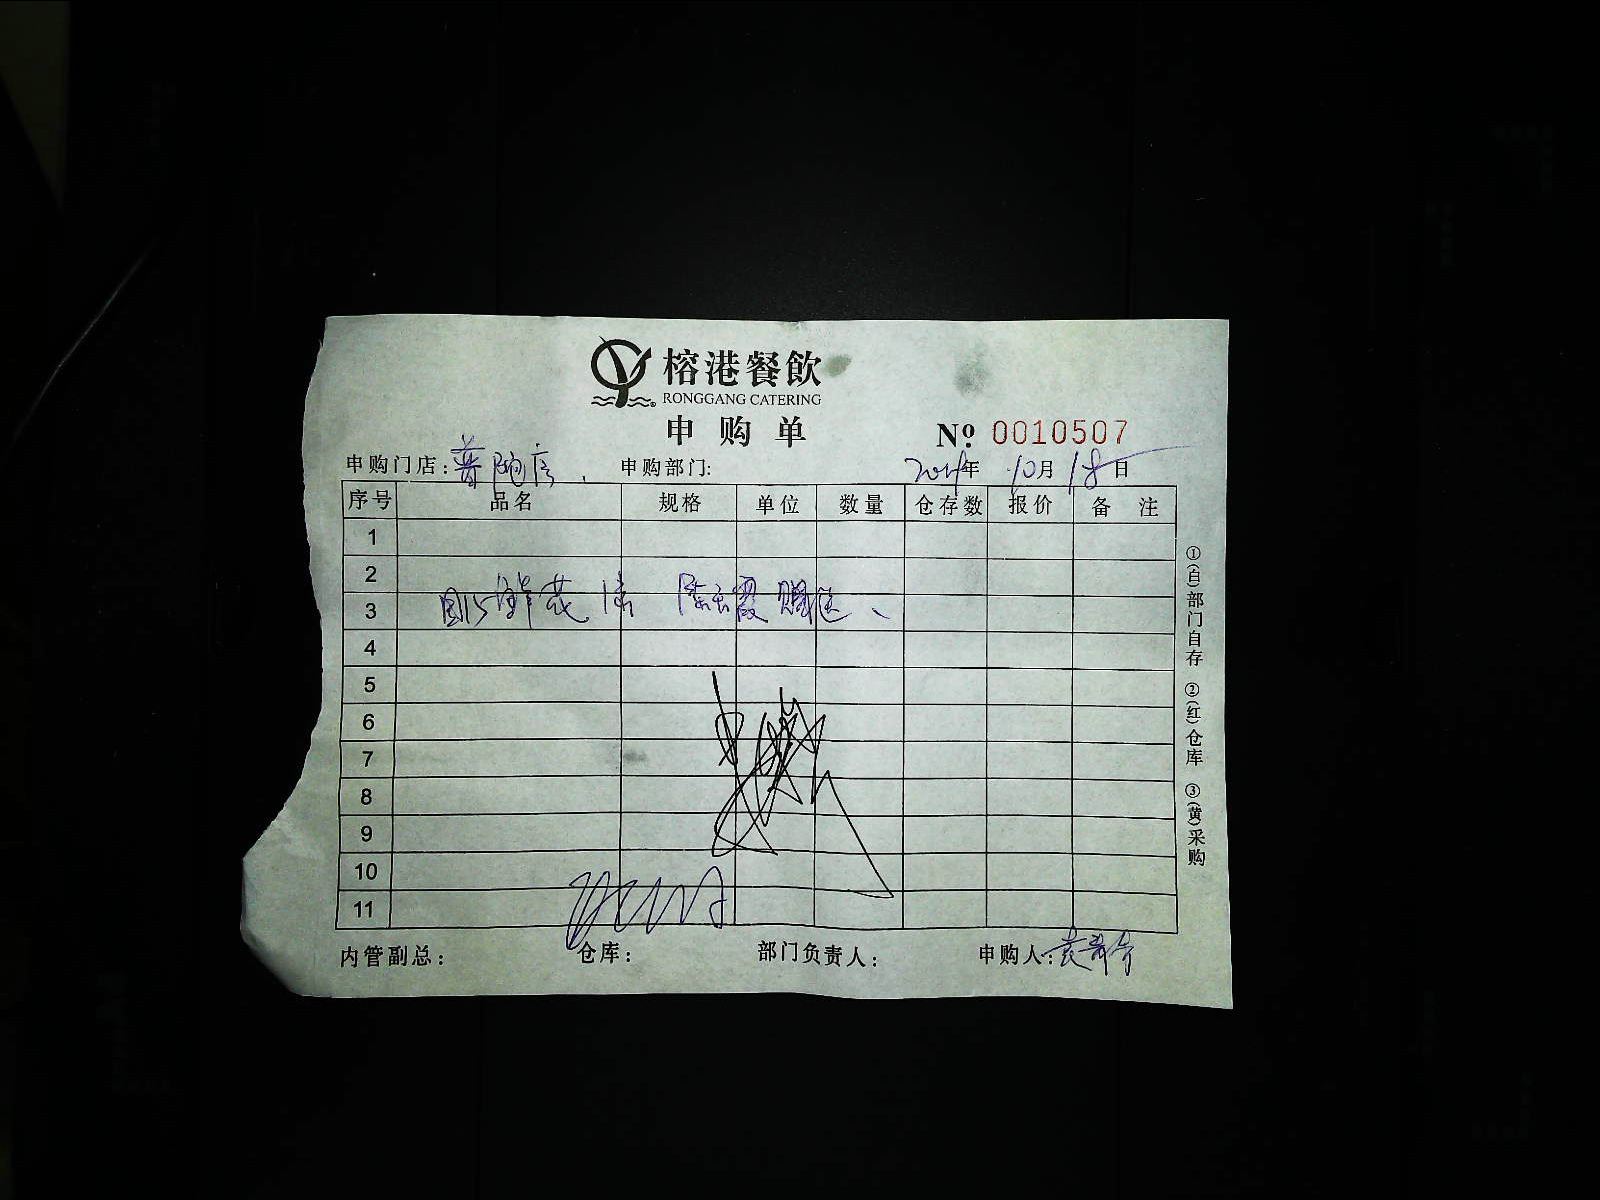 榕港餐飲
RONGGANG CATERING
申购单
№ 0010507
申购门店:普陀店 申购部门: 年 10月18日
序号 品名 规格 单位 数量 仓存数 报价 备注
1
2
3 鲜花 赠送
4
5
6
7
8
9
10
11
①(白)部门自存 ②(红)仓库 ③(黄)采购
内管副总: 仓库: 部门负责人: 申购人: